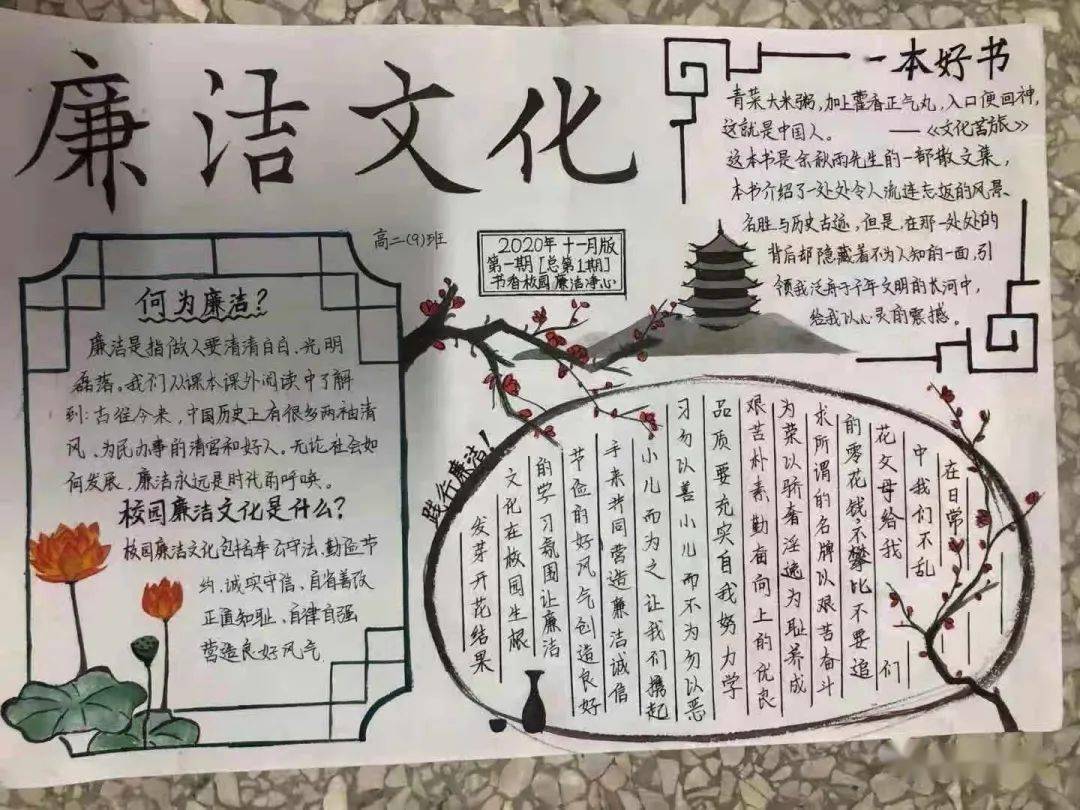 廉洁文化
高二(9)班
2020年十一月版
第一期[总第1期]
书香校园 廉洁净心
一本好书
青菜大米粥,加上藿香正气丸,入口便回神,
这就是中国人。 ——《文化苦旅》
这本书是余秋雨先生的一部散文集,
本书介绍了一处处令人流连忘返的风景、
名胜与历史古迹,但是,在那一处处的
背后却隐藏着不为人知的一面,引
领我泛舟于千年文明的长河中,
给我以心灵的震撼。
何为廉洁?
廉洁是指做人要清清白白、光明
磊落。我们从课本课外阅读中了解
到:古往今来,中国历史上有很多两袖清
风、为民办事的清官和好人。无论社会如
何发展,廉洁永远是时代的呼唤。
校园廉洁文化是什么?
校园廉洁文化包括奉公守法、勤俭节
约、诚实守信、自省善改
正道知耻、自律自强
营造良好风气
践行廉洁!
在日常
中我们不乱
花父母给我们
的零花钱,不攀比不要追
求所谓的名牌以艰苦奋斗
为荣以骄奢淫逸为耻养成
艰苦朴素勤奋向上的优良
品质要充实自我努力学
习勿以善小儿而不为勿以恶
小儿而为之让我们携起
手来共同营造廉洁诚信
节俭的好风气创造良好
的学习氛围让廉洁
文化在校园生根
发芽开花结果